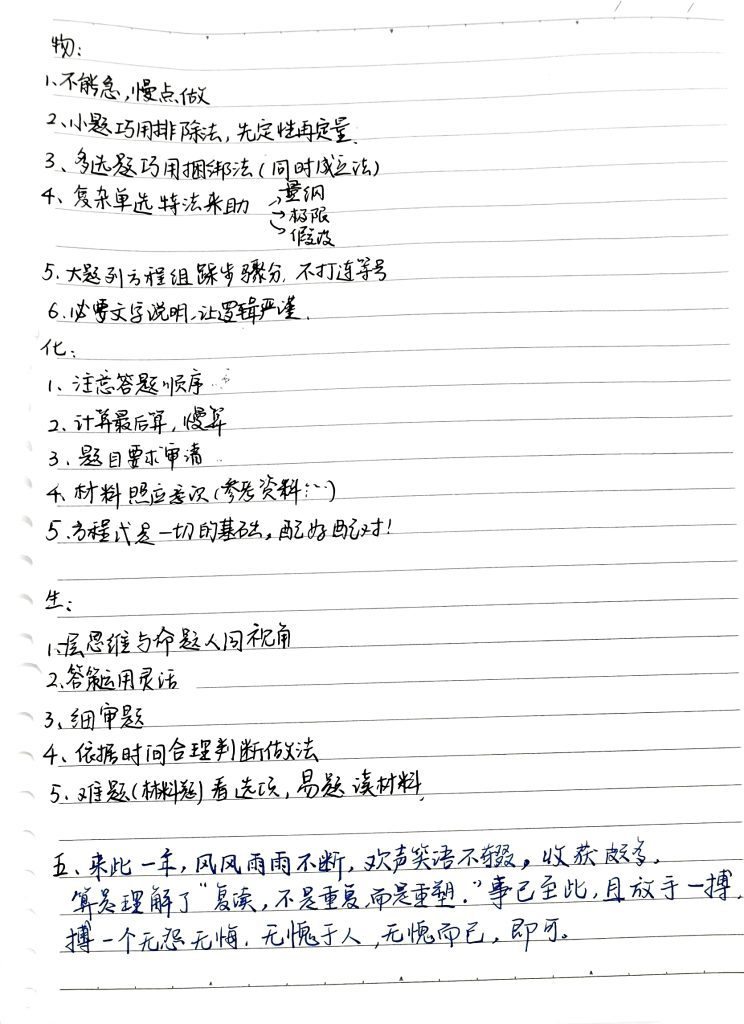 物：
1、不能急，慢点做
2、小题巧用排除法，先定性再定量.
3、多选题巧用捆绑法(同时成立法)
4、复杂单选特法来助 →量纲
→极限
→假设
5.大题列方程组踩步骤分.不打连等号
6.必要文字说明.让逻辑严谨.
化：
1、注意答题顺序
2.计算最后算，慢算
3.题目要求审清
4.材料照应多次(参考资料:…)
5.方程式是一切的基础。配好配对!
生：
1.层思维与命题人同视角
2.答案运用灵活
3、细审题
4、依据时间合理判断做法
5.难题(材料题)看选项，易题读材料.
五、来此一年，风风雨雨不断，欢声笑语不辍。收获颇多.
算是理解了“复读，不是重复,而是重塑.”事已至此，且放手一搏.
搏一个无怨无悔.无愧于人，无愧而已，即可。